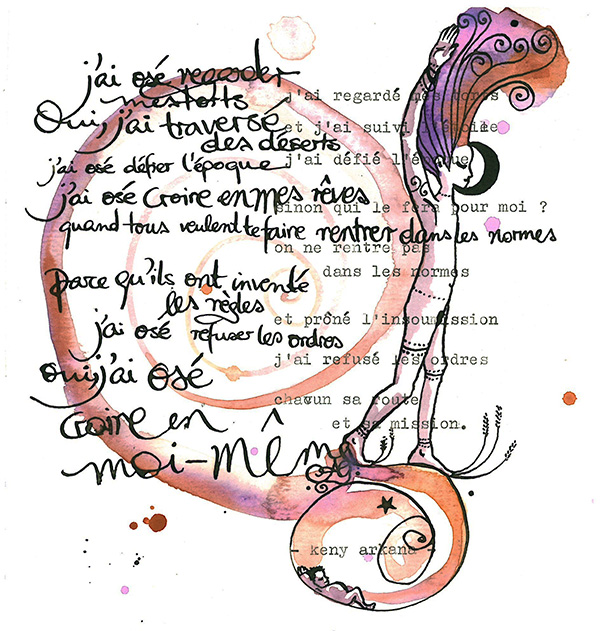 j'ai osé regarder
mes torts
Oui, j'ai traversé
des déserts
j'ai osé défier l'époque
j'ai osé croire en mes rêves
quand tous veulent te faire rentrer dans les normes
parce qu'ils ont inventé
les règles
j'ai osé refuser les ordres
oui, j'ai osé
croire en
moi-même
j'ai regardé mes torts
et j'ai suivi l'étoile
j'ai défié l'époque
sinon qui le fera pour moi ?
on ne rentre pas
dans les normes
et prôné l'insoumission
j'ai refusé les ordres
chacun sa route
et sa mission.
- keny arkana -